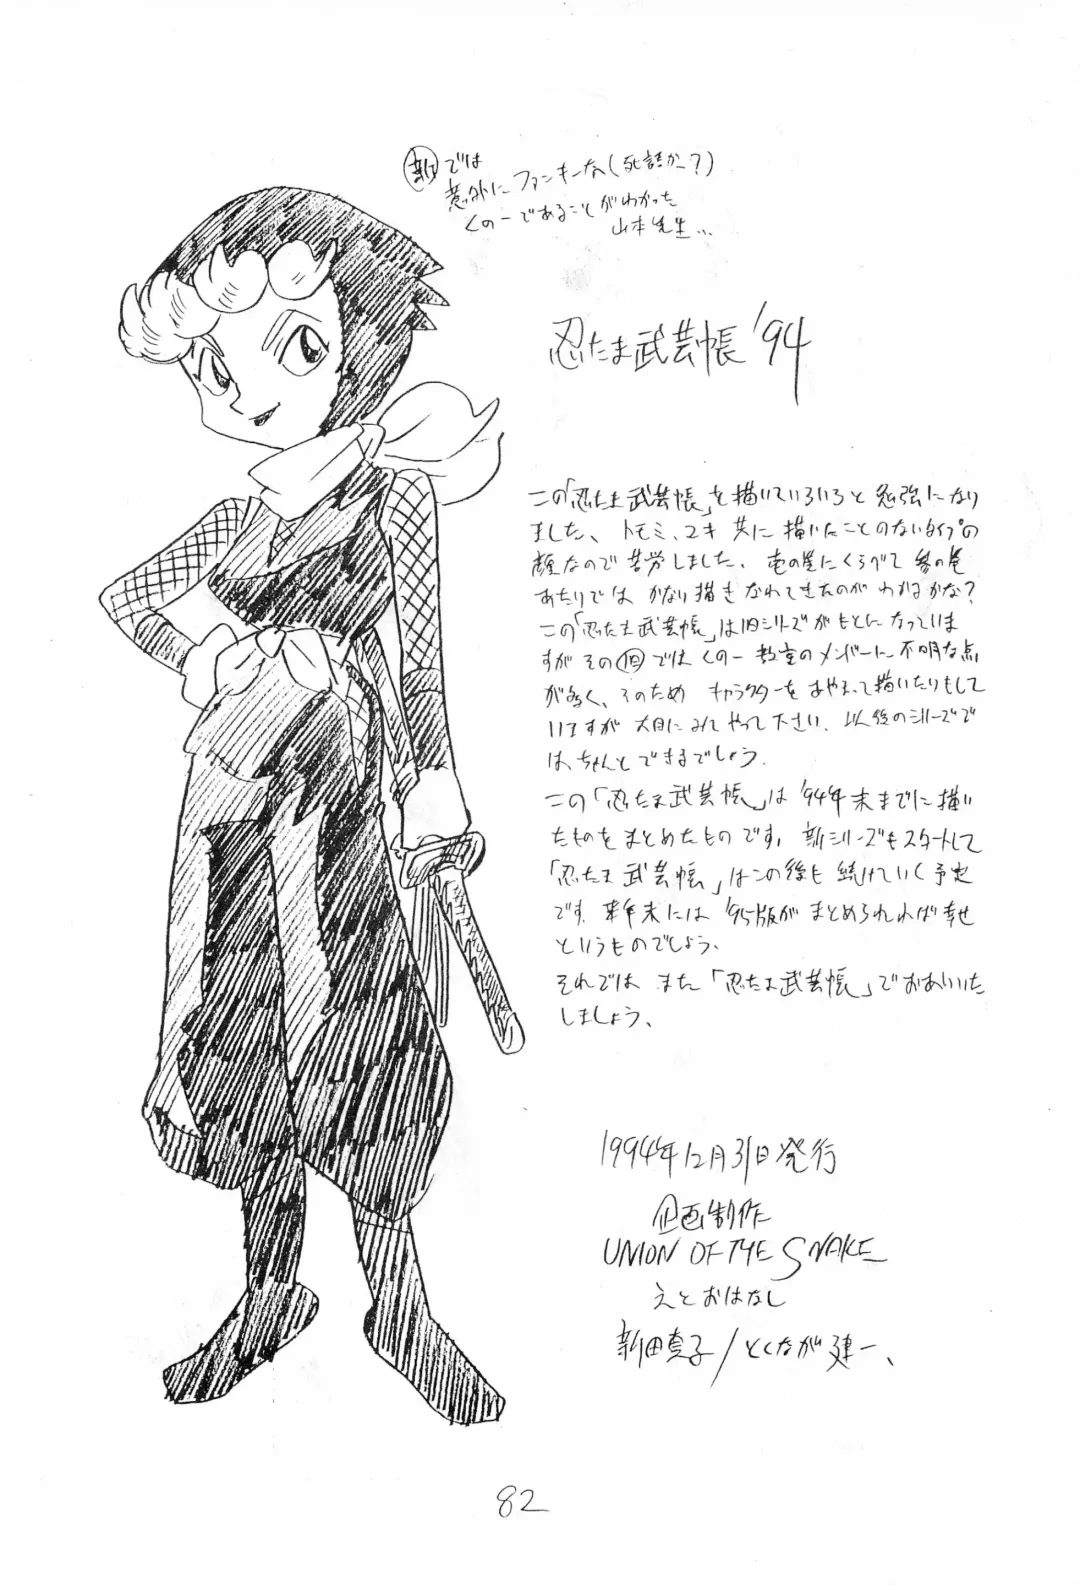 新では
意外にファンキーな(死語かー?)
くの一であることがわかった
山本先生…
忍たま武芸帳'94
この「忍たま武芸帳」を描いていろいろと勉強になり
ました、トモミ、ユキ共に描いたことのないタイプの
顔なので苦労しました、壱の巻にくらべて参の巻
あたりではかなり描きなれてきたのがわかるかな?
この「忍たま武芸帳」は旧シリーズがもとになっていま
すがその旧ではくの一教室のメンバーに不明な点
が多く、そのためキャラクターをあやまって描いたりもして
いますが大目にみてやって下さい、以後のシリーズで
は、ちゃんとできるでしょう.
この「忍たま武芸帳」は'94年末までに描い
たものをまとめたものです, 新シリーズもスタートして
「忍たま武芸帳」はこの後も続けていく予定
です. 来年末には'95版がまとめられれば幸せ
というものでしょう、
それではまた「忍たま武芸帳」でおあいいた
しましょう、
1994年12月31日発行
企画制作
UNION OF THE SNAKE
えとおはなし
新田真子/とくなが建一、
82